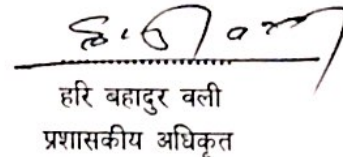 हरि बहादुर वली
प्रशासकीय अधिकृत